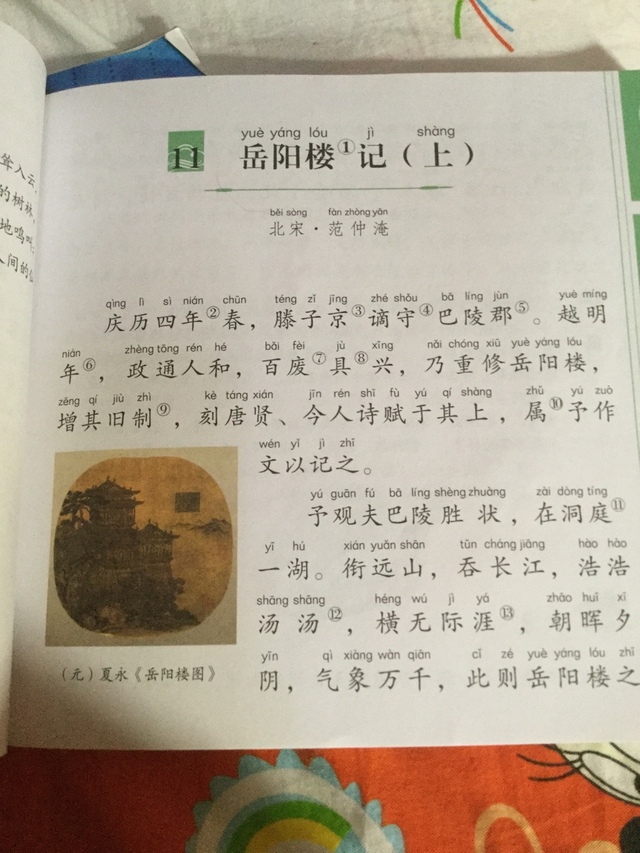 yuè yáng lóu jì shàng
11 岳阳楼①记（上）
běi sòng fàn zhòng yān
北宋·范仲淹
qìng lì sì nián chūn téng zǐ jīng zhé shǒu bā líng jùn yuè míng
庆历四年②春，滕子京③谪守④巴陵郡⑤。越明
nián zhèng tōng rén hé bǎi fèi jù xīng nǎi chóng xiū yuè yáng lóu
年⑥，政通人和，百废⑦具⑧兴，乃重修岳阳楼，
zēng qí jiù zhì kè táng xián jīn rén shī fù yú qí shàng zhǔ yú zuò
增其旧制⑨，刻唐贤、今人诗赋于其上，属⑩予作
wén yǐ jì zhī
文以记之。
yú guān fú bā líng shèng zhuàng zài dòng tíng
予观夫巴陵胜状，在洞庭⑪
yī hú xián yuǎn shān tūn cháng jiāng hào hào
一湖。衔远山，吞长江，浩浩
shāng shāng héng wú jì yá zhāo huī xī
汤汤⑫，横无际涯⑬，朝晖夕
yīn qì xiàng wàn qiān cǐ zé yuè yáng lóu zhī
阴，气象万千，此则岳阳楼之
（元）夏永《岳阳楼图》
耸入云，
的树林，
地鸣叫
人间的仙